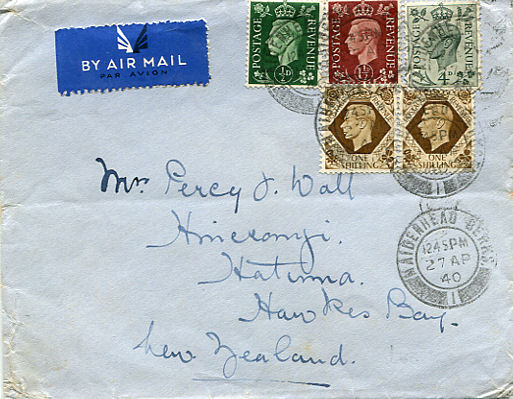 BY AIR MAIL
PAR AVION
POSTAGE REVENUE ½D
POSTAGE REVENUE 1½D
POSTAGE REVENUE 4D
ONE SHILLING
ONE SHILLING
Mrs Percy J. Wall
Hatuma.
Hawkes Bay.
New Zealand.
MAIDENHEAD BERKS
1245 PM
27 AP
40
1